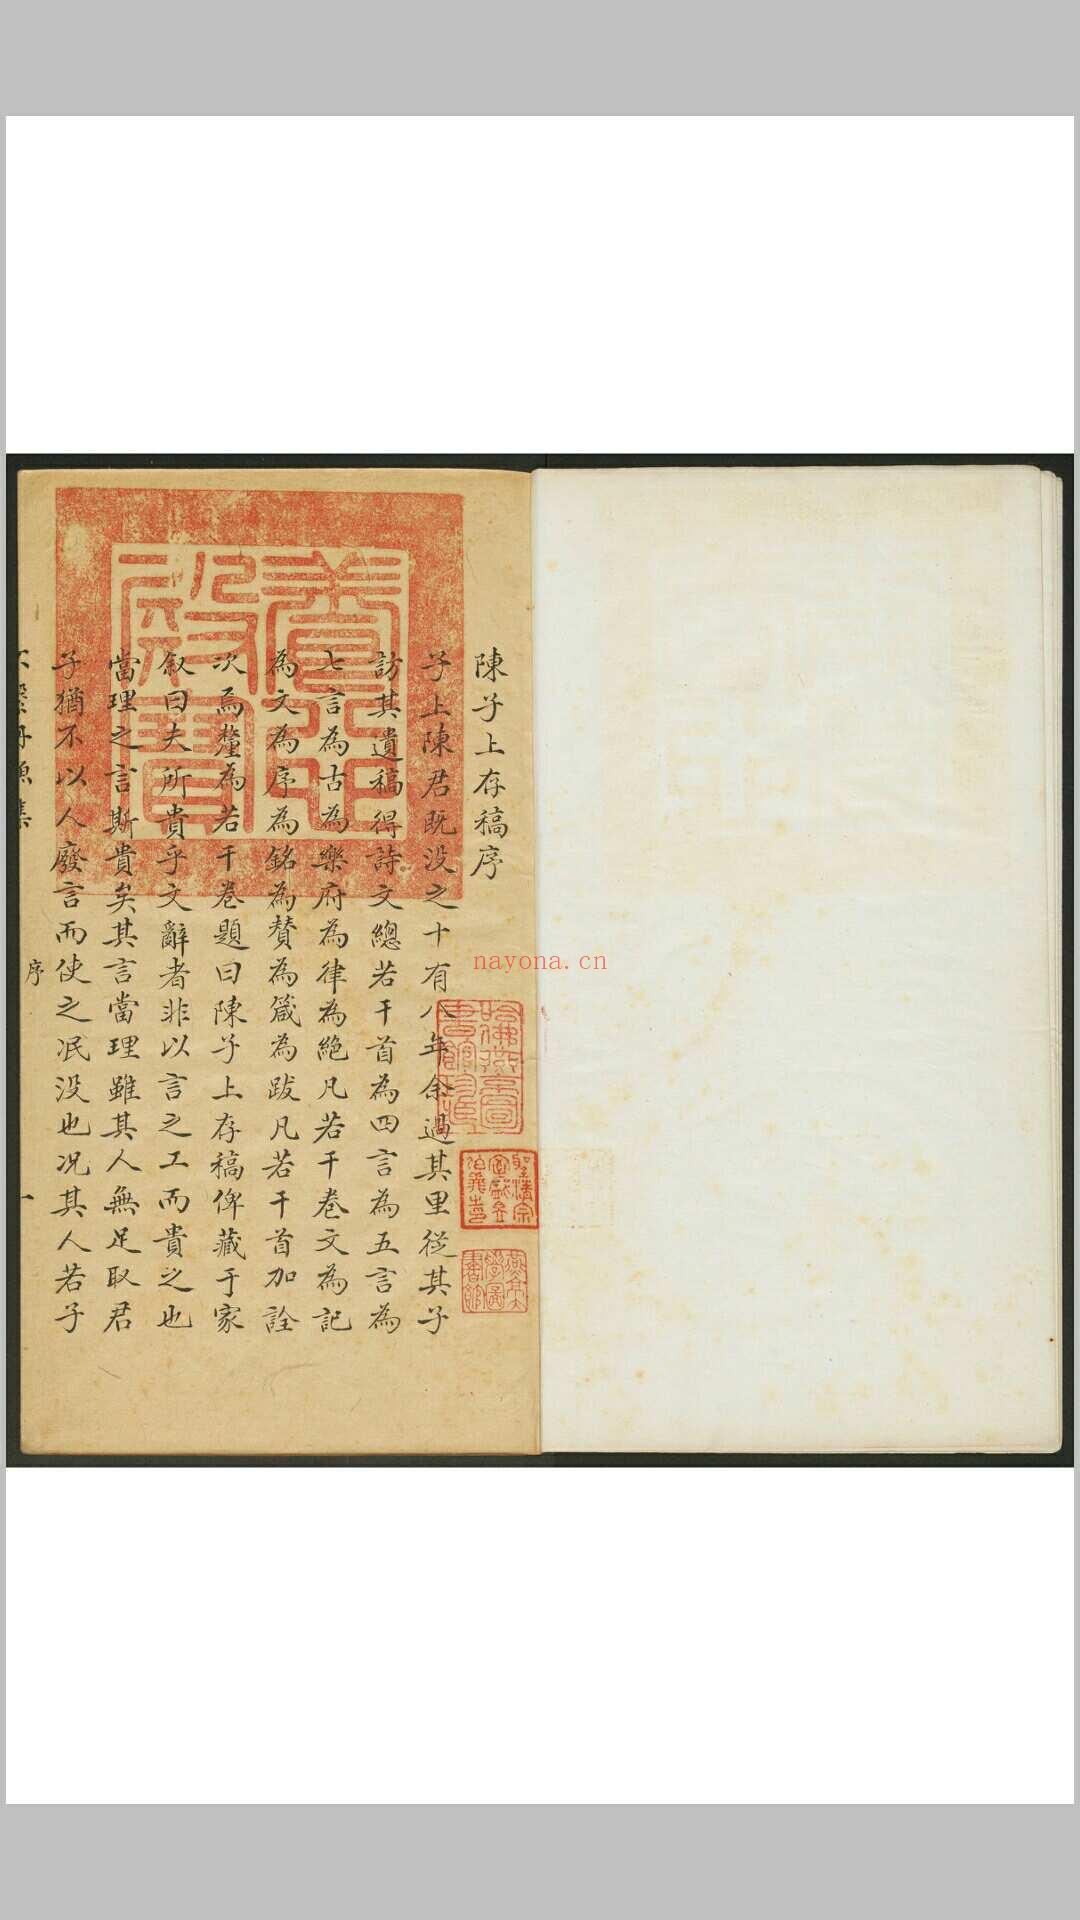 陳子上存稿序
子上陳君既没之十有八年余過其里從其子
訪其遺稿得詩文總若干首為四言為五言為
七言為古為樂府為律為絕凡若干卷文為記
為文為序為銘為賛為箴為跋凡若干首加詮
次焉釐為若干卷題曰陳子上存稿俾藏于家
叙曰夫所貴乎文辭者非以言之工而貴之也
當理之言斯貴矣其言當理雖其人無足取君
子猶不以人廢言而使之泯没也况其人若子
不繫舟漁集
序
一
養心殿寳
哈佛燕京圖書館珍藏
nayona.cn